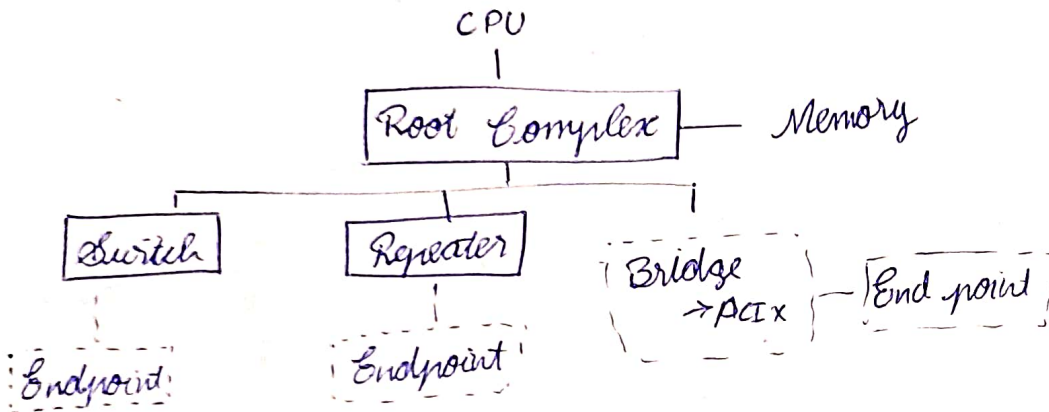 CPU
Root Complex
Memory
Switch
Repeater
Bridge
→ PCIx
End point
Endpoint
Endpoint